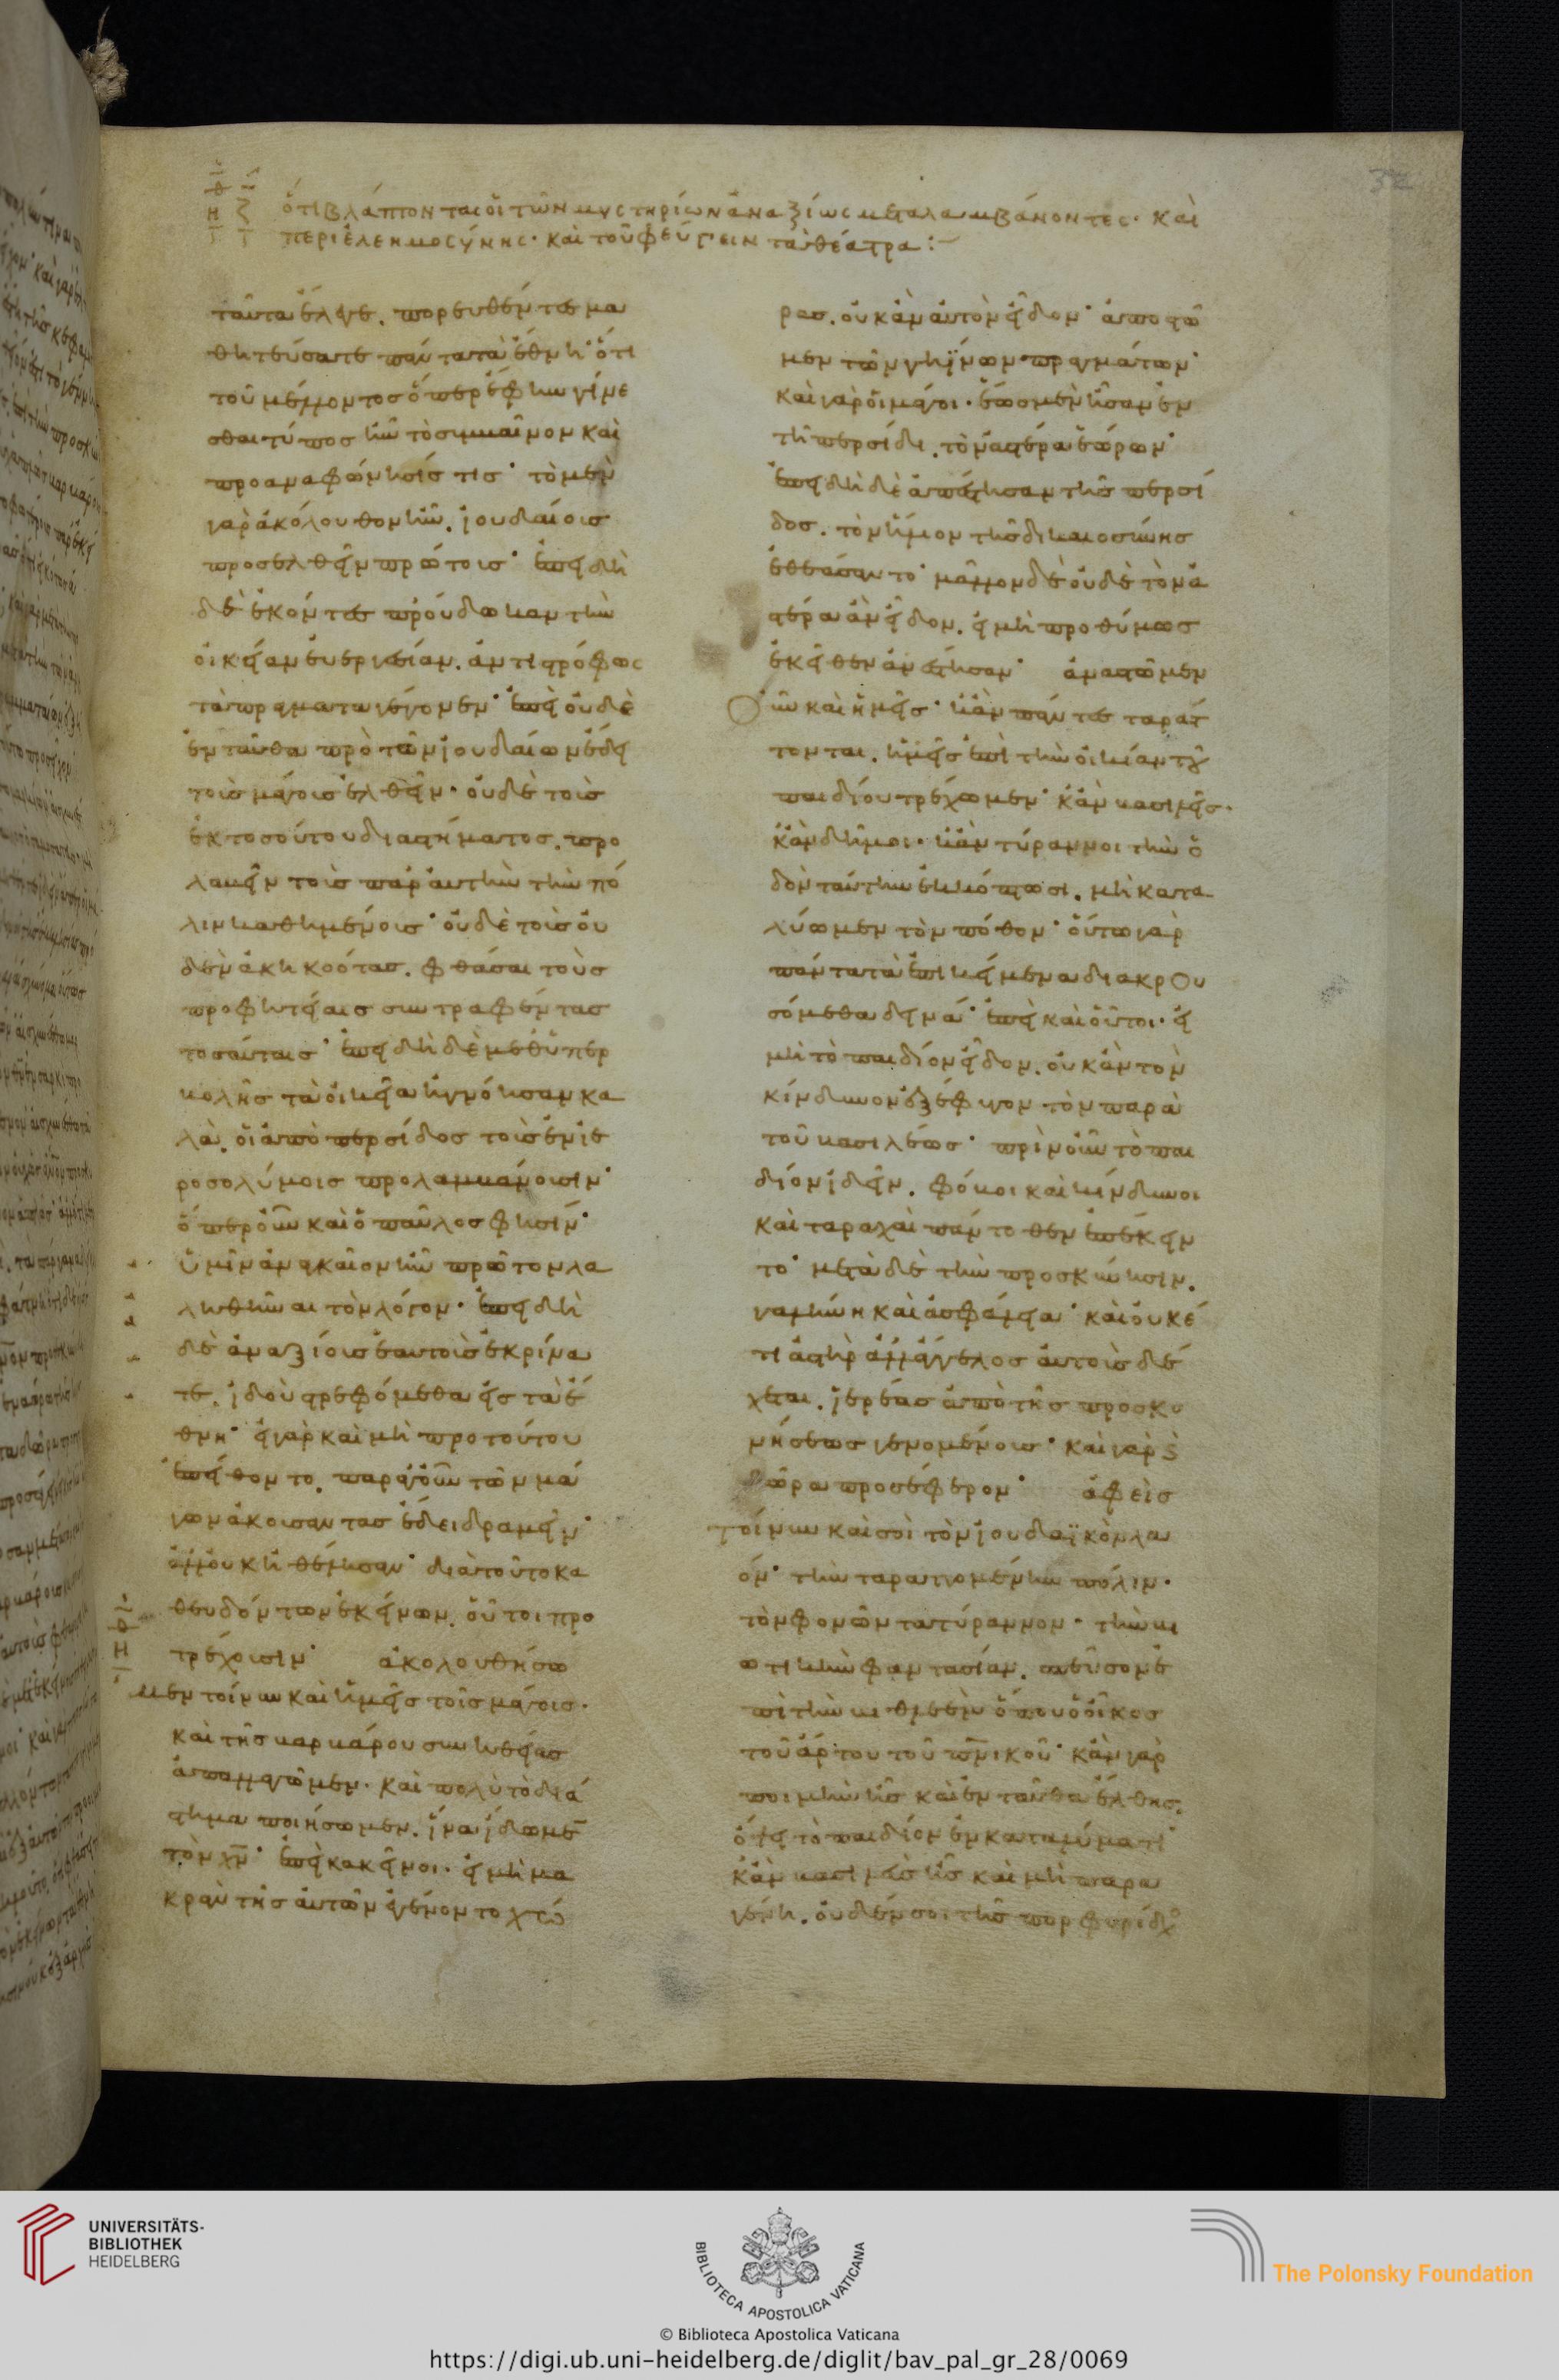 ὅτι βλάπτονται οἱ τῶν μυστηρίων ἀναξίως μεταλαμβάνοντες· καὶ
περὶ ἐλεημοσύνης· καὶ τοῦ φεύγειν τὰ θέατρα:~
ταῦτα ἔλεγε. πορευθέντες μα
θητεύσατε πάντα τὰ ἔθνη· ὅτι
τοῦ μέλλοντος ὅπερ ἔφην γίνε
σθαι τύπος ἦν τὸ συμβαῖνον καὶ
προαναφώνησίς τις· τὸ μὲν
γὰρ ἀκόλουθον ἦν. ἰουδαίοις
προσελθεῖν πρώτοις· ἐπειδὴ
δὲ ἑκόντες προύδωκαν τὴν
οἰκείαν εὐεργεσίαν. ἀντιστρόφως
τὰ πράγματα γέγονεν· ἐπεὶ οὐδὲ
ἐνταῦθα πρὸ τῶν ἰουδαίων ἔδει
τοὺς μάγους ἐλθεῖν· οὐδὲ τοὺς
ἐκ τοσούτου διαστήματος. προ
λαβεῖν τοὺς παρ' αὐτὴν τὴν πό
λιν καθημένους· οὐδὲ τοὺς οὐ
δὲν ἀκηκοότας. φθάσαι τοὺς
προφητείαις συντραφέντας
τοσαύταις· ἐπειδὴ δὲ μεθ' ὑπερ
βολῆς τὰ οἰκεῖα ἠγνόησαν κα
λὰ. οἱ ἀπὸ περσίδος τοὺς ἐν ἱε
ροσολύμοις προλαμβάνουσιν·
ὅπερ οὖν καὶ ὁ παῦλος φησίν·
ὑμῖν ἀναγκαῖον ἦν πρῶτον λα
ληθῆναι τὸν λόγον· ἐπειδὴ
δὲ ἀναξίους ἑαυτοὺς ἐκρίνα
τε. ἰδοὺ στρεφόμεθα εἰς τὰ ἔ
θνη· εἰ γὰρ καὶ μὴ πρὸ τούτου
ἐπείθοντο. παρὰ γοῦν τῶν μά
γων ἀκούσαντας ἔδει δραμεῖν·
ἀλλ' οὐκ ἠθέλησαν· διὰ τοῦτο κα
θευδόντων ἐκείνων. οὗτοι προ
τρέχουσιν· ἀκολουθήσω
μεν τοίνυν καὶ ἡμεῖς τοῖς μάγοις·
καὶ τῆς βαρβάρου συνηθείας
ἀπαλλαγῶμεν· καὶ πολὺ τὸ διά
στημα ποιήσωμεν. ἵνα ἴδωμε̅
τὸν χ̅ν̅· ἐπεὶ κἀκεῖνοι· εἰ μὴ μα
κρὰν τῆς αὐτῶν ἐγένοντο χώ
ρας. οὐκ ἂν αὐτὸν εἶδον· ἀποστῶ
μεν τῶν γηΐνων πραγμάτων·
καὶ γὰρ οἱ μάγοι· ἕως μὲν ἦσαν ἐν
τῇ περσίδι. τὸν ἀστέρα ἑώρων·
ἐπειδὴ δὲ ἀπέστησαν τῆς περσί
δος. τὸν ἥλιον τῆς δικαιοσύνης
ἐθεάσαντο· μᾶλλον δὲ οὐδὲ τὸν ἀ
στέρα ἂν εἶδον. εἰ μὴ προθύμως
ἐκεῖθεν ἀνέστησαν· ἀναστῶμεν
οὖν καὶ ἡμεῖς· κἂν πάντες ταράτ
τονται. ἡμεῖς ἐπὶ τὴν οἰκίαν τοῦ
παιδίου τρέχωμεν· κἂν βασιλεῖς·
κἂν δῆμοι· κἂν τύραννοι τὴν ὁ
δὸν ταύτην ἐκκόπτωσι. μὴ κατα
λύωμεν τὸν πόθον· οὕτω γὰρ
πάντα τὰ ἐπικείμενα διακρου
σόμεθα δεινά· ἐπεὶ καὶ οὗτοι· εἰ
μὴ τὸ παιδίον εἶδον. οὐκ ἂν τὸν
κίνδυνον ἐξέφυγον τὸν παρὰ
τοῦ βασιλέως· πρὶν οὖν τὸ παι
δίον ἰδεῖν. φόβοι καὶ κίνδυνοι
καὶ ταραχαὶ πάντοθεν ἐπέκειν
το· μετὰ δὲ τὴν προσκύνησιν.
γαλήνη καὶ ἀσφάλεια· καὶ οὐκέ
τι ἀστὴρ ἀλλ' ἄγγελος αὐτοὺς δέ
χεται. ἱερέας ἀπὸ τῆς προσκυ
νήσεως γενομένους· καὶ γὰρ καὶ
δῶρα προσέφερον· ἀφεὶς
τοίνυν καὶ σὺ τὸν ἰουδαϊκὸν λα
όν· τὴν ταραττομένην πόλιν·
τὸν φονῶντα τύραννον· τὴν βι
ωτικὴν φαντασίαν. σπεῦσον ἐ
πὶ τὴν βηθλεὲμ ὅπου ὁ οἶκος
τοῦ ἄρτου τοῦ πν̅ικοῦ· κἂν γὰρ
ποιμὴν ᾖς καὶ ἐνταῦθα ἔλθῃς.
ὄψει τὸ παιδίον ἐν καταλύματι·
κἂν βασιλεὺς ᾖς καὶ μὴ παρα
γένῃ. οὐδέν σοι τῆς πορφυρίδος
UNIVERSITÄTS-
BIBLIOTHEK
HEIDELBERG
BIBLIOTECA APOSTOLICA VATICANA
The Polonsky Foundation
© Biblioteca Apostolica Vaticana
https://digi.ub.uni-heidelberg.de/diglit/bav_pal_gr_28/0069